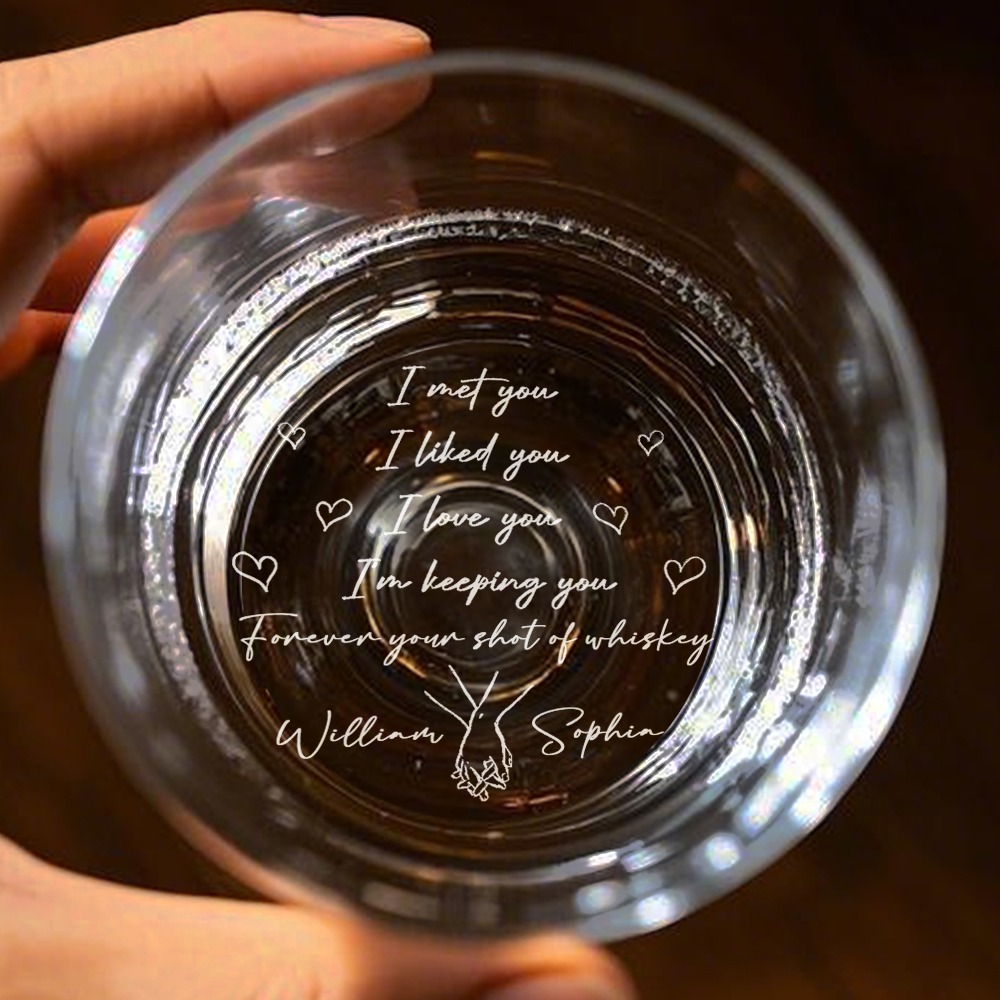 I met you
I liked you
I love you
I'm keeping you
Forever your shot of whiskey
William Sophia